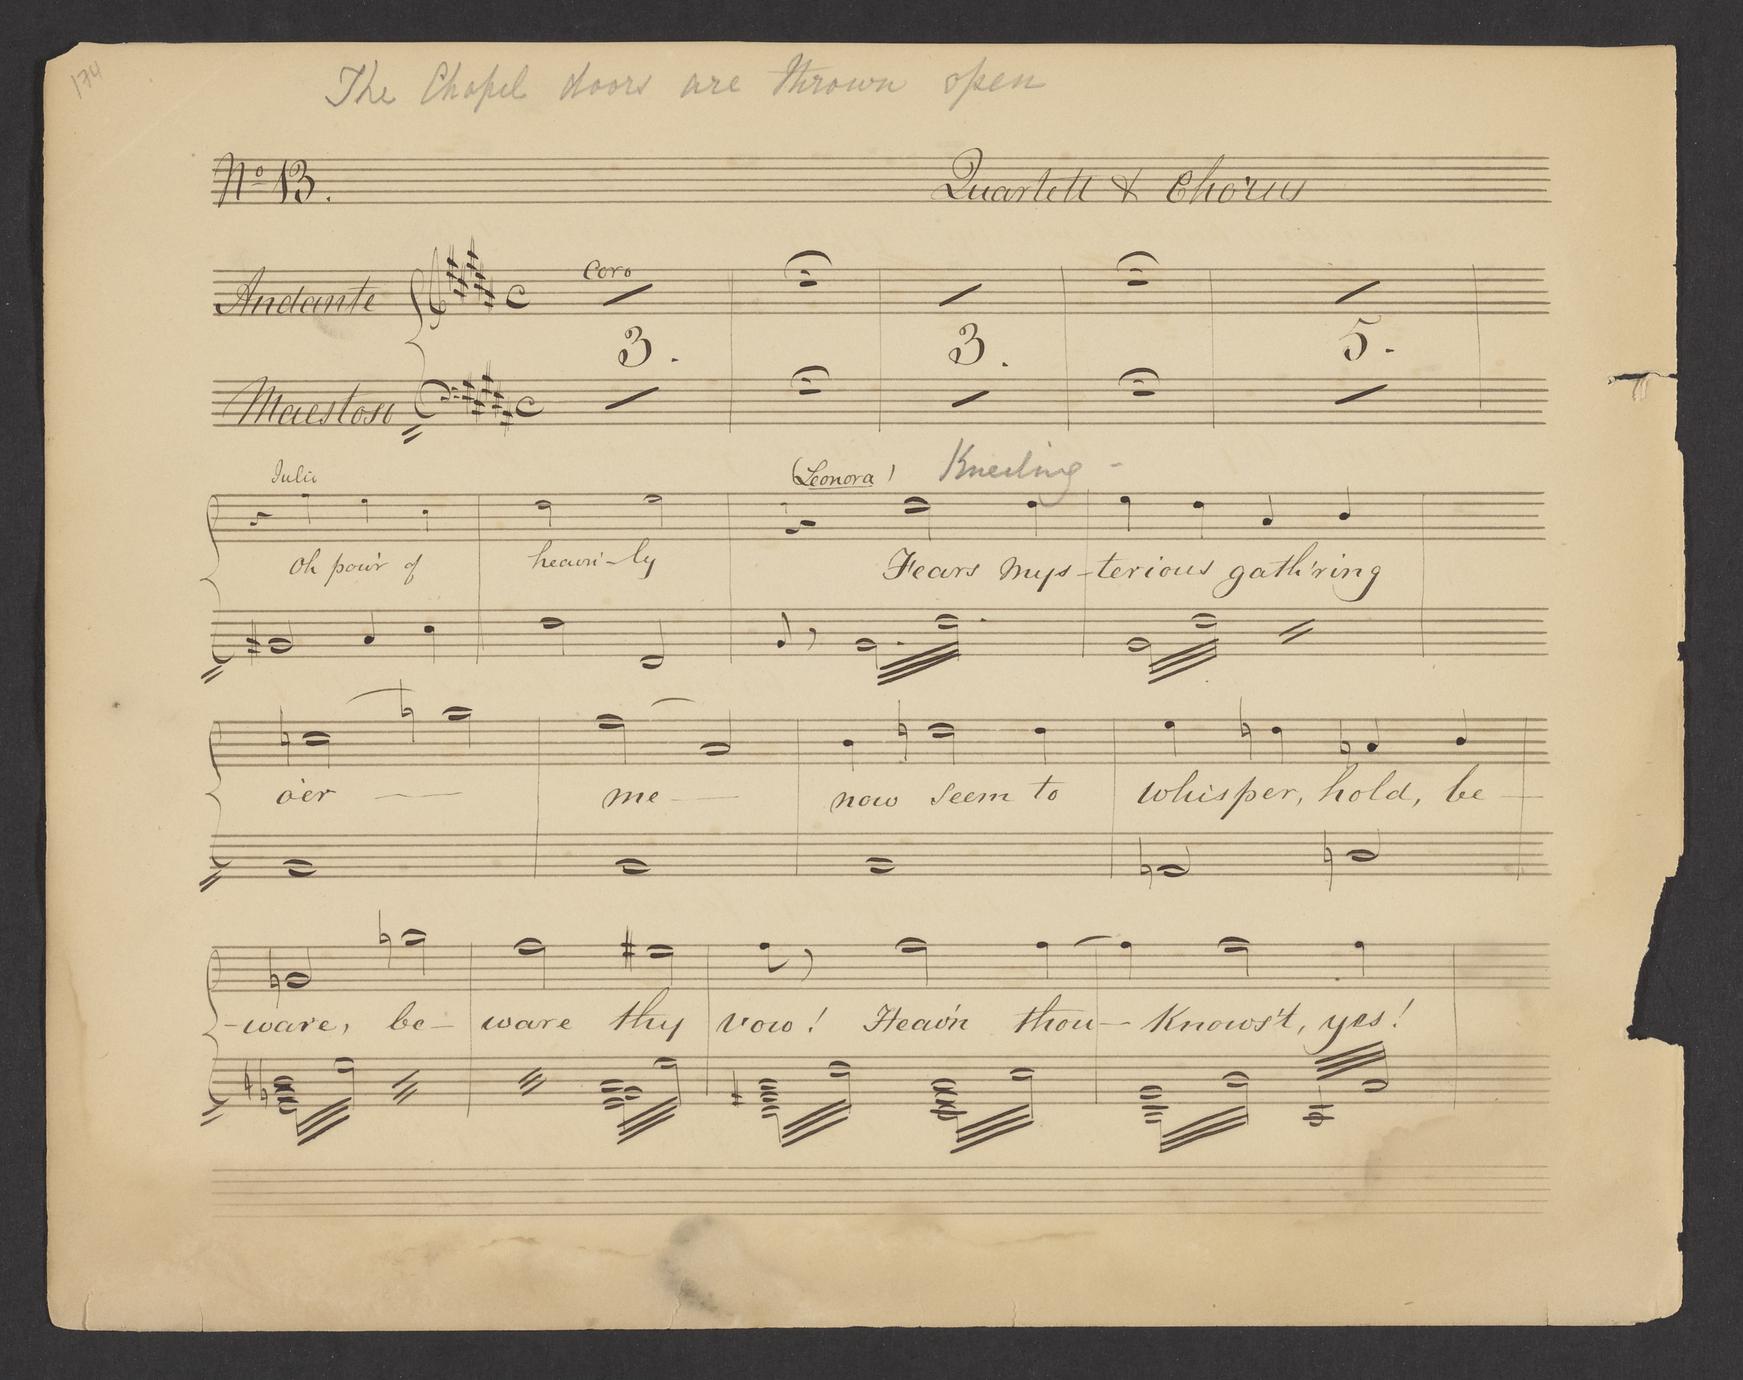 174
The Chapel doors are thrown open
No 13.
Quartett & Chorus
Andante
Coro
3.
3.
5.
Maestoso
Julia
(Leonora)
Kneeling -
Oh pow'r of heav'n-ly
Fears mys-terious gath'ring
o'er — me — now seem to whisper, hold, be—
-ware, be- ware thy vow! Heav'n thou— know'st, yes!